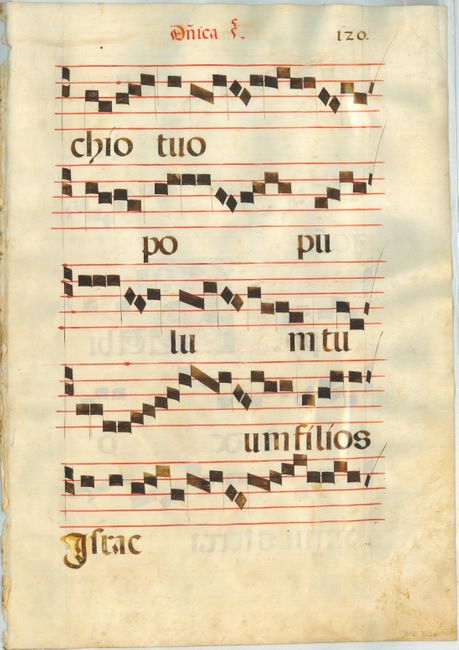 Dñica 120.
chio tuo
po pu
lu m tu
um filios
Israe